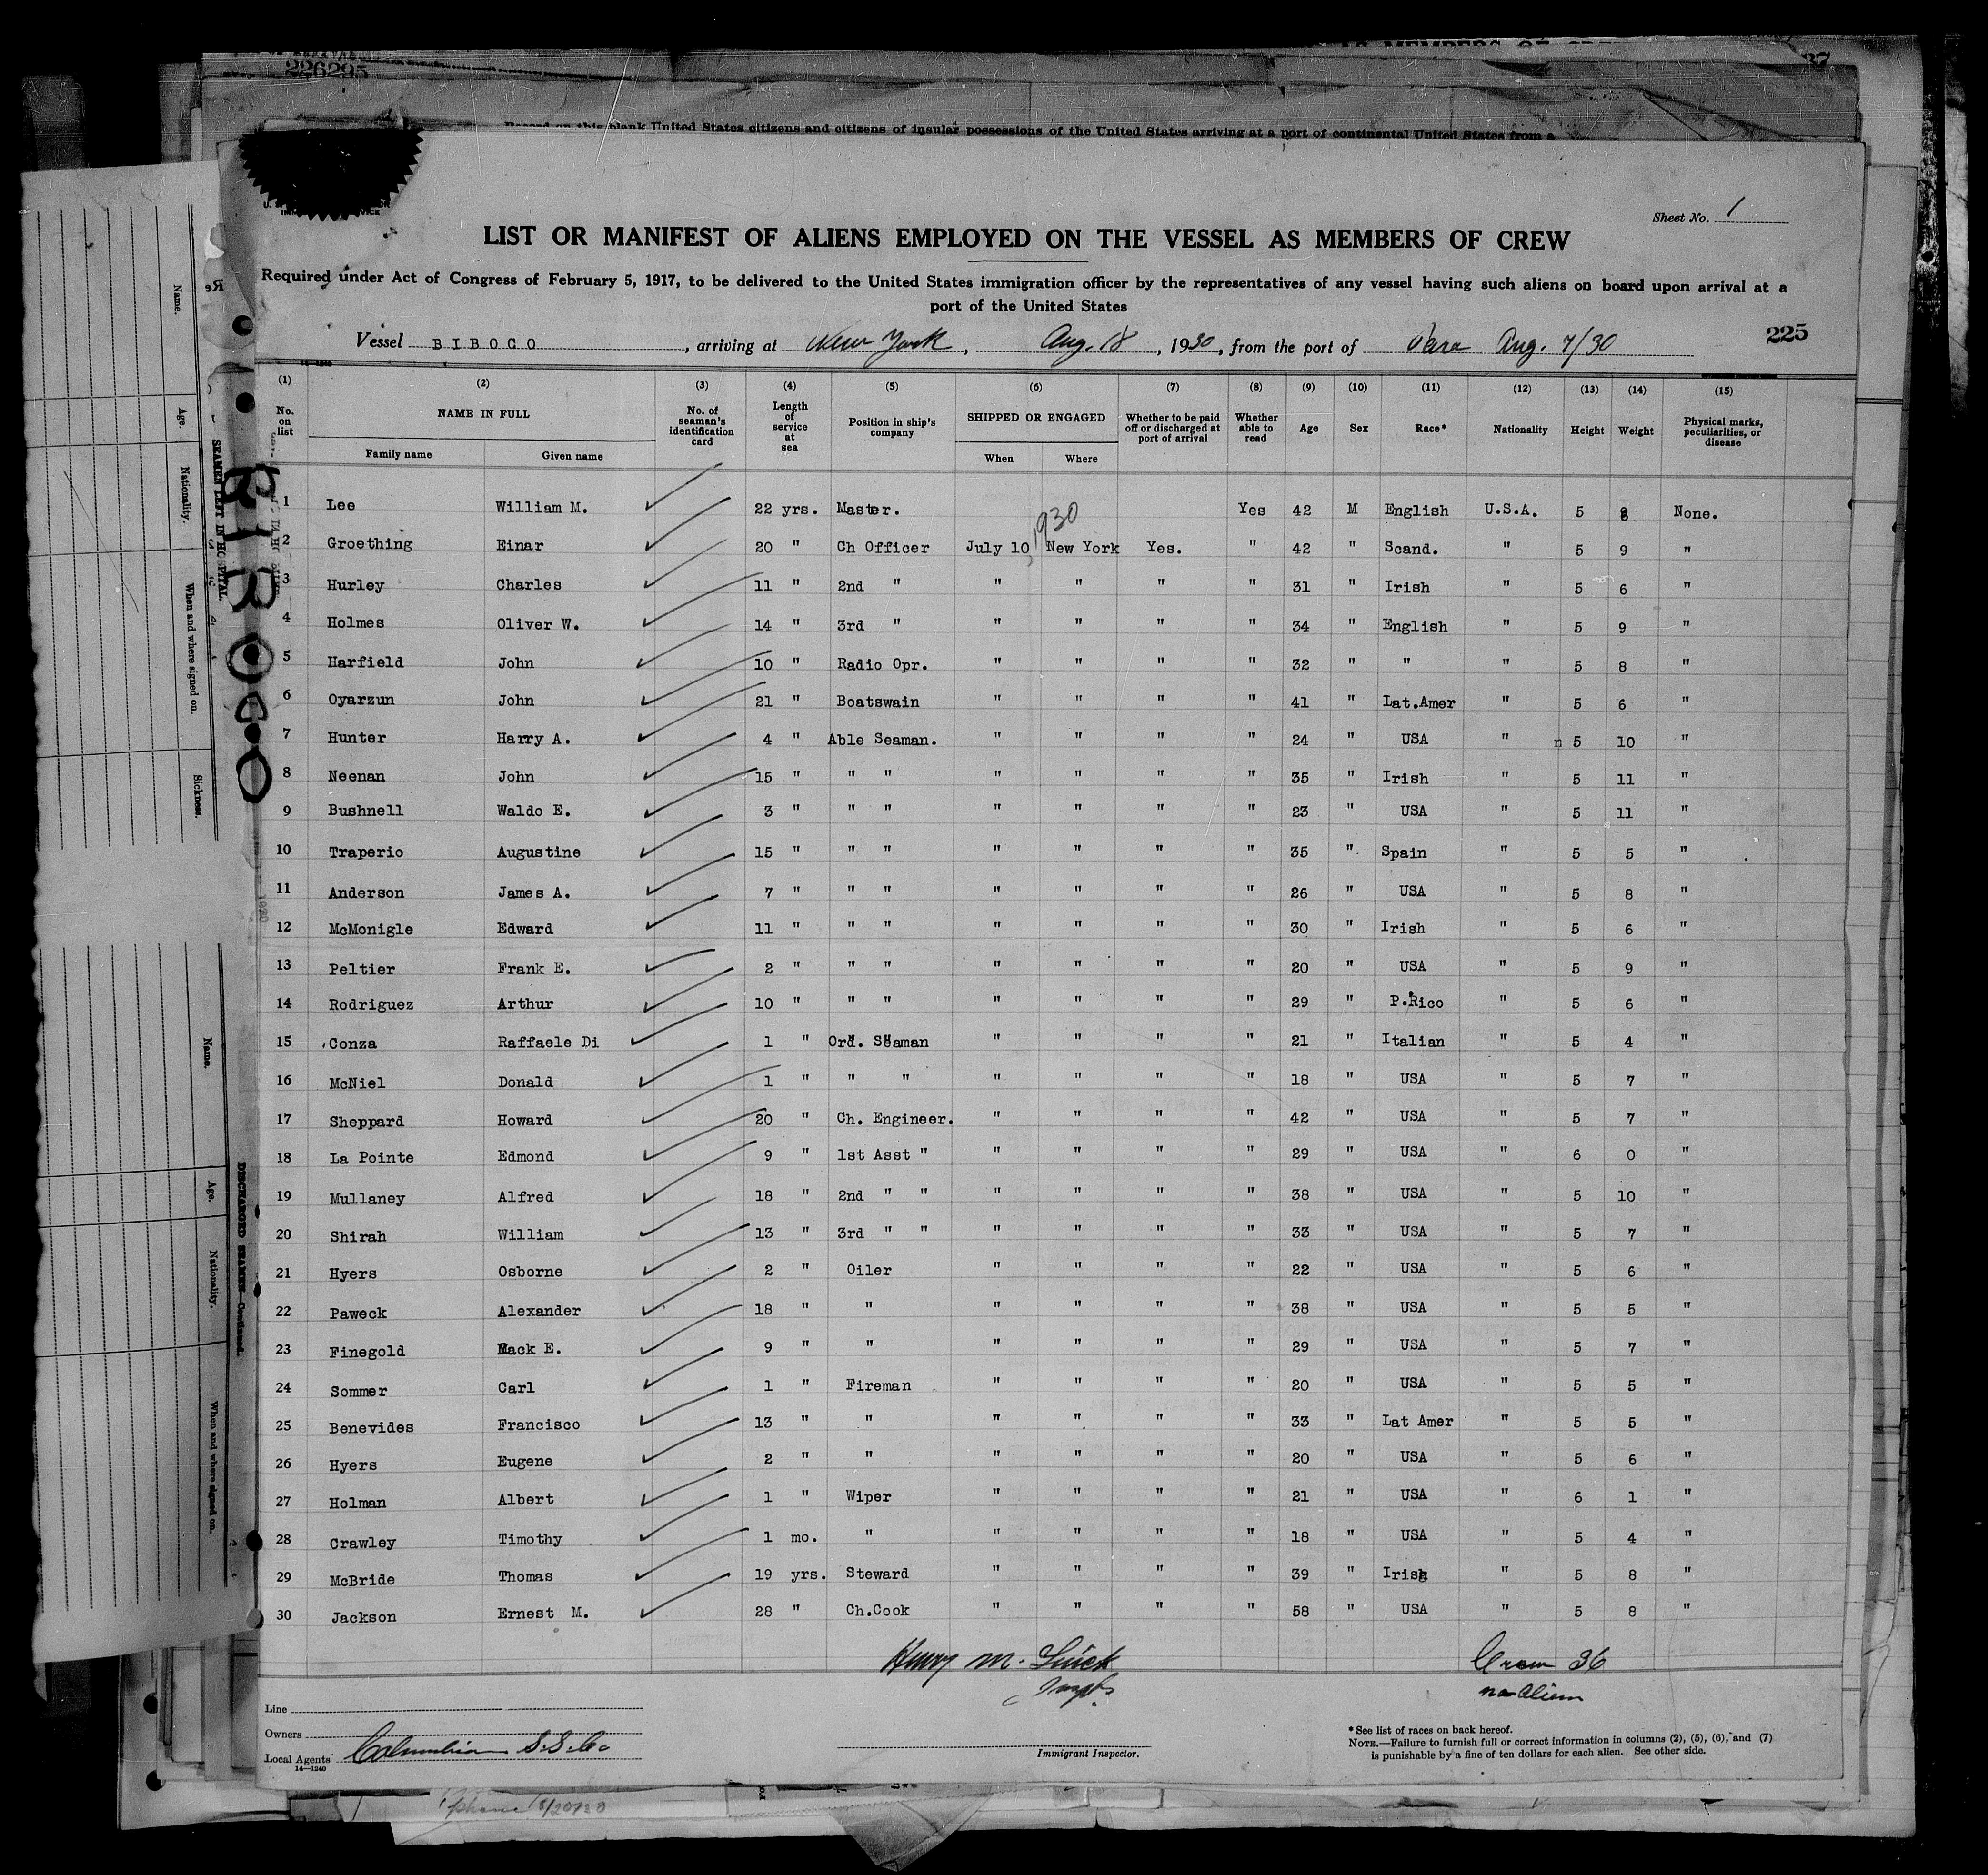 226295
37
Record on this blank United States citizens and citizens of insular possessions of the United States arriving at a port of continental United States from a
Sheet No. 1
LIST OR MANIFEST OF ALIENS EMPLOYED ON THE VESSEL AS MEMBERS OF CREW
Required under Act of Congress of February 5, 1917, to be delivered to the United States immigration officer by the representatives of any vessel having such aliens on board upon arrival at a
port of the United States
Vessel BIBOCO, arriving at New York, Aug. 18, 1930, from the port of Para Aug. 7/30
225
(1) (2) (3) (4) (5) (6) (7) (8) (9) (10) (11) (12) (13) (14) (15)
No. on list NAME IN FULL No. of seaman's identification card Length of service at sea Position in ship's company SHIPPED OR ENGAGED Whether to be paid off or discharged at port of arrival Whether able to read Age Sex Race* Nationality Height Weight Physical marks, peculiarities, or disease
Family name Given name When Where
1930
1 Lee William M. 22 yrs. Master. Yes 42 M English U.S.A. 5 8 None.
2 Groething Einar 20 " Ch Officer July 10, New York Yes. " 42 " Scand. " 5 9 "
3 Hurley Charles 11 " 2nd " " " " " 31 " Irish " 5 6 "
4 Holmes Oliver W. 14 " 3rd " " " " " 34 " English " 5 9 "
5 Harfield John 10 " Radio Opr. " " " " 32 " " " 5 8 "
6 Oyarzun John 21 " Boatswain " " " " 41 " Lat.Amer " 5 6 "
7 Hunter Harry A. 4 " Able Seaman. " " " " 24 " USA " n 5 10 "
8 Neenan John 15 " " " " " " " 35 " Irish " 5 11 "
9 Bushnell Waldo E. 3 " " " " " " " 23 " USA " 5 11 "
10 Traperio Augustine 15 " " " " " " " 35 " Spain " 5 5 "
11 Anderson James A. 7 " " " " " " " 26 " USA " 5 8 "
12 McMonigle Edward 11 " " " " " " " 30 " Irish " 5 6 "
13 Peltier Frank E. 2 " " " " " " " 20 " USA " 5 9 "
14 Rodriguez Arthur 10 " " " " " " " 29 " P.Rico " 5 6 "
15 Conza Raffaele Di 1 " Ord. Seaman " " " " 21 " Italian " 5 4 "
16 McNiel Donald 1 " " " " " " " 18 " USA " 5 7 "
17 Sheppard Howard 20 " Ch. Engineer. " " " " 42 " USA " 5 7 "
18 La Pointe Edmond 9 " 1st Asst " " " " " 29 " USA " 6 0 "
19 Mullaney Alfred 18 " 2nd " " " " " " 38 " USA " 5 10 "
20 Shirah William 13 " 3rd " " " " " " 33 " USA " 5 7 "
21 Hyers Osborne 2 " Oiler " " " " 22 " USA " 5 6 "
22 Paweck Alexander 18 " " " " " " 38 " USA " 5 5 "
23 Finegold Mack E. 9 " " " " " " 29 " USA " 5 7 "
24 Sommer Carl 1 " Fireman " " " " 20 " USA " 5 5 "
25 Benevides Francisco 13 " " " " " " 33 " Lat Amer " 5 5 "
26 Hyers Eugene 2 " " " " " " 20 " USA " 5 6 "
27 Holman Albert 1 " Wiper " " " " 21 " USA " 6 1 "
28 Crawley Timothy 1 mo. " " " " " 18 " USA " 5 4 "
29 McBride Thomas 19 yrs. Steward " " " " 39 " Irish " 5 8 "
30 Jackson Ernest M. 28 " Ch.Cook " " " " 58 " USA " 5 8 "
Henry M.
Crew 36
no Aliens
Line
Owners
Local Agents Columbian S.S. Co
14—1240
Immigrant Inspector.
*See list of races on back hereof.
NOTE.—Failure to furnish full or correct information in columns (2), (5), (6), and (7)
is punishable by a fine of ten dollars for each alien. See other side.
Name.
Age.
Nationality.
When and where signed on.
Sickness.
SEAMEN LEFT IN HOSPITAL
Name.
Age.
Nationality.
When and where signed on.
DISCHARGED SEAMEN—Continued.